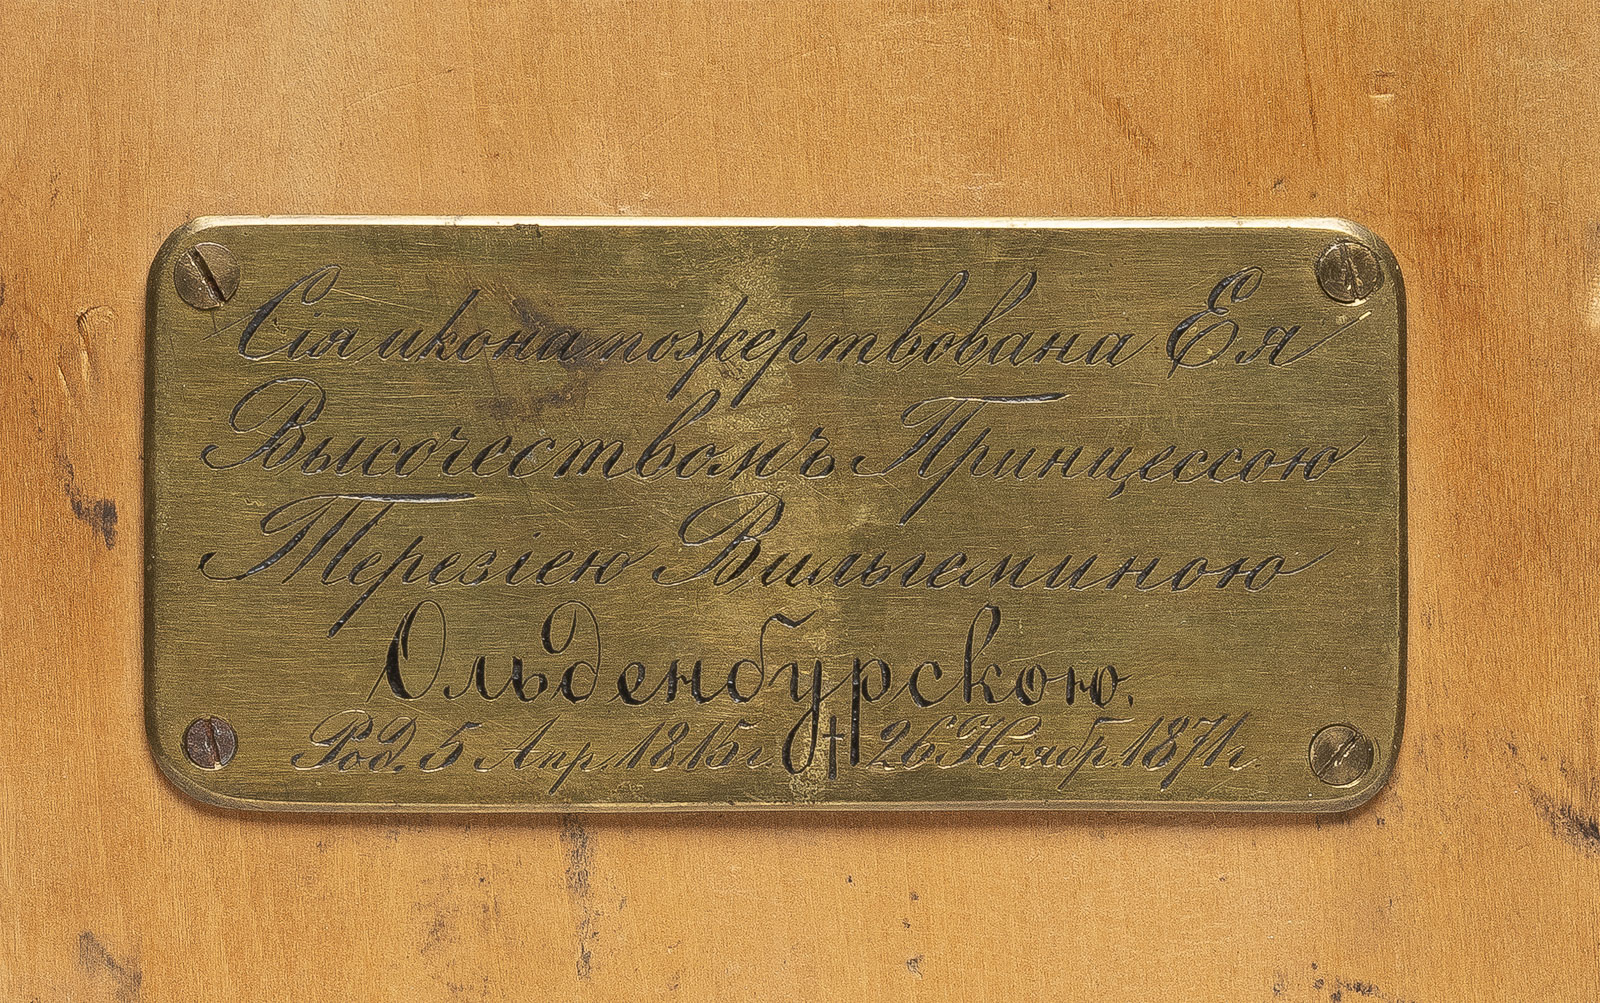 Сія икона пожертвована Ея
Высочествомъ Принцессою
Терезіею Вильгеминою
Ольденбурскою.
Род. 5 Апр. 1815 г. † 26 Ноябр. 1871 г.